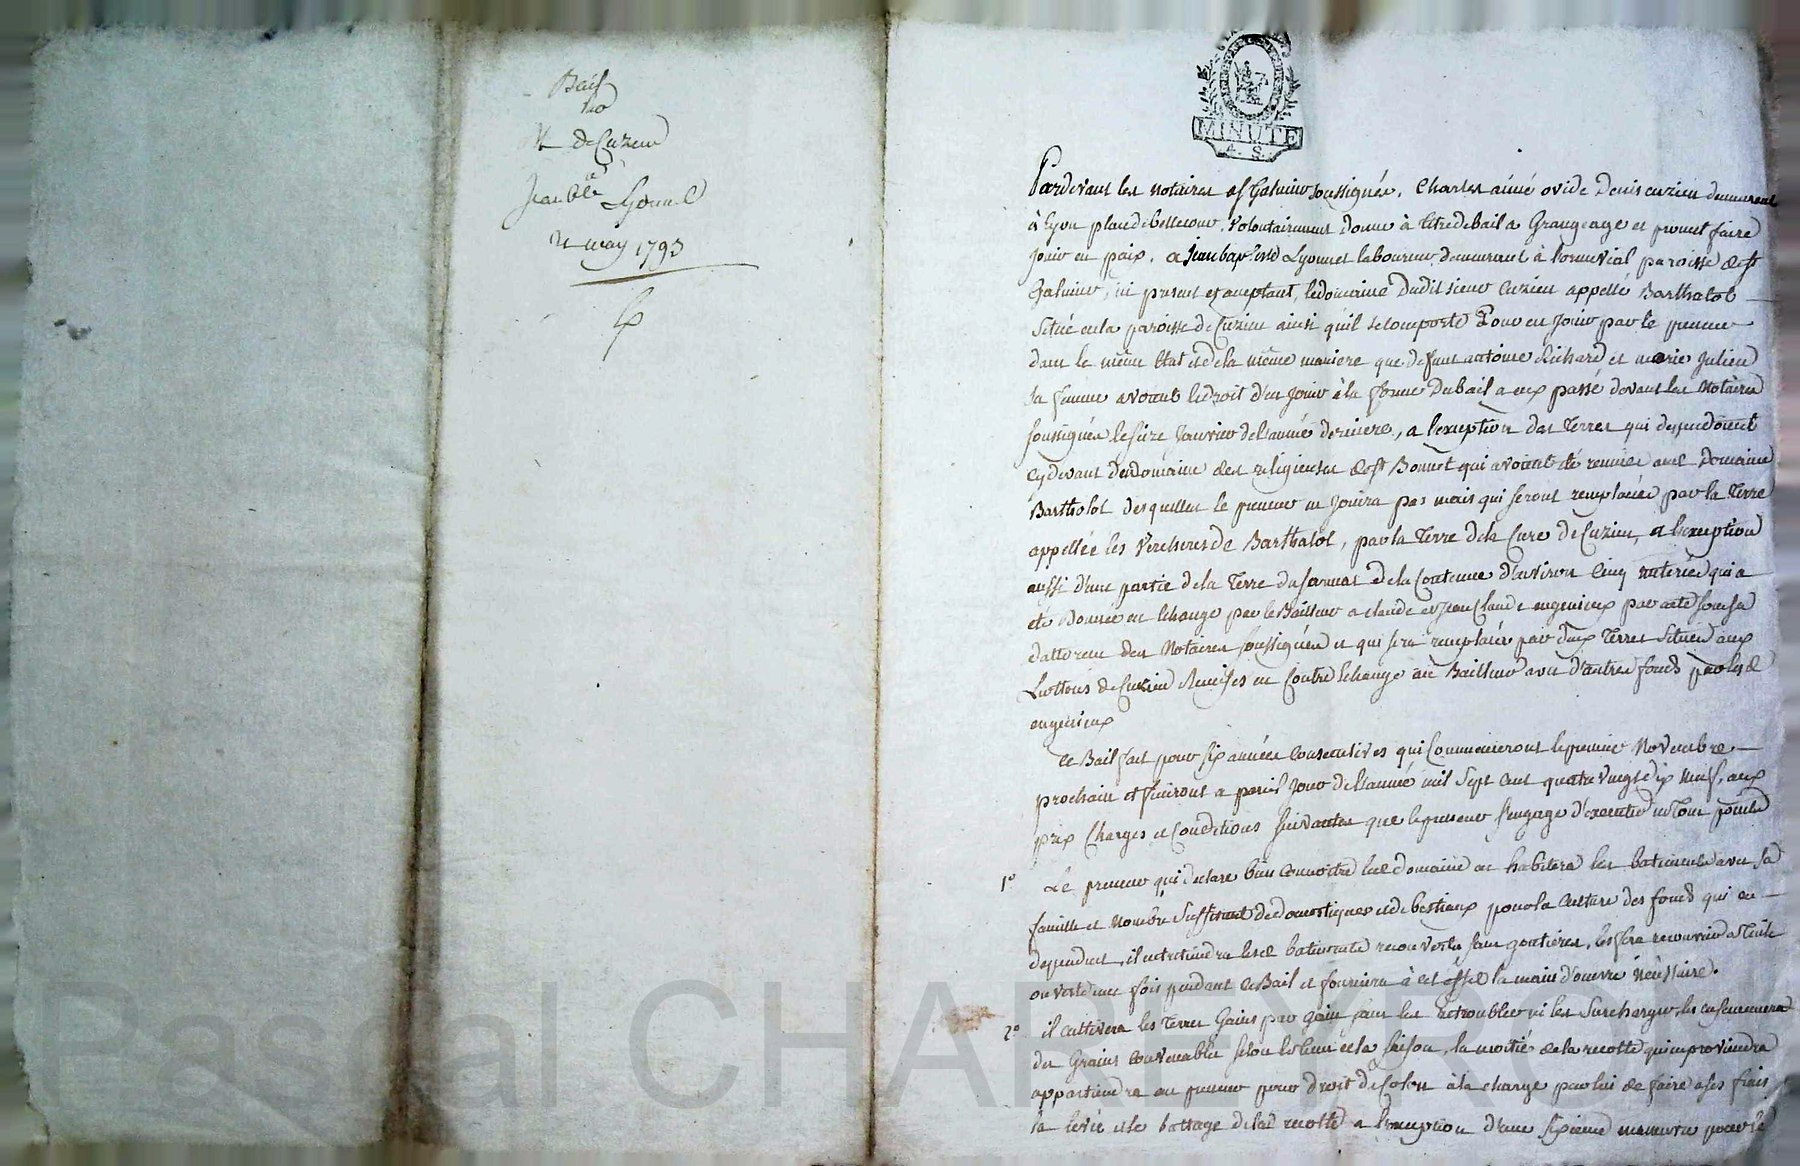 Bail
par
Mr de Cuzieu
à
Jean Bte Lyonnet
2 may 1793
MINUTE
4. S.
Pardevant les notaires à st Galmier soussignés, Charles aimé ovide Denis cuzieu demeurant
à Lyon place de bellecour, volontairement donne à titre de bail a Grangeage et promet faire
jouir en paix, a jean baptiste Lyonnet laboureur demeurant à paroisse de st
Galmier, ici present et acceptant, le domaine dudit sieur Cuzieu appellé Barthalot
Situé en la paroisse de Cuzieu ainsi quil se comporte Pour en Jouir par le preneur
dans le même Etat et de la même maniere que defunt antoine Richard et marie Julien
sa femme avoient le droit d'en jouir à la forme du bail a eux passé devant les Notaires
soussignés le seize Janvier de l'année derniere, a l'exception des Terres qui dependoient
cydevant du domaine des religieuses de st Bonnet qui avoient été reunies au Domaine
Barthalot desquelles le preneur ne jouira pas mais qui seront remplacées par la Terre
appellée les Vercheres de Barthalot, par la Terre de la Cure de Cuzieu, a l'exception
aussi d'une partie de la Terre de la Contenue d'environ Cinq meterées qui a
été Donnée en Echange par le Bailleur a claude et jean Claude engenieux par acte
des Notaires soussignés et qui sera remplacée par deux Terres Situées aux
de Cuzieu Remises en Contre Echange au Bailleur avec d'autres fonds par lesd
engenieux
Ce Bail fait pour six années Consecutives qui Commenceront le premier Novembre
prochain et finiront a pareil jour de l'année mil Sept Cent quatre vingt dix neuf, aux
prix Charges et Conditions Suivantes que le preneur s'engage d'executer en Tout point
1° Le preneur qui declare bien connoitre led domaine en habitera les batiments avec sa
famille et Nombre Suffisant de domestiques et de bestiaux pour la Culture des fonds qui en
dependent, il entretiendra lesd batiments recouverts sans gouttieres, les fera recouvrir a Tuile
ouverte une fois pendant ce Bail et fournira à cet effet la main d'oeuvre Nécéssaire.
2° il cultivera les Terres Gains par gain sans les retroubler ni les Surcharger, les ensemencera
de Grains Convenables selon le lieu et la saison, la moitié de la recolte qui en proviendra
appartiendra au preneur pour droit de Colon à la charge par lui de faire a ses frais
la levée et le battage de lad recolte a l'exception d'une sixieme pour le
Pascal CHAREYRON